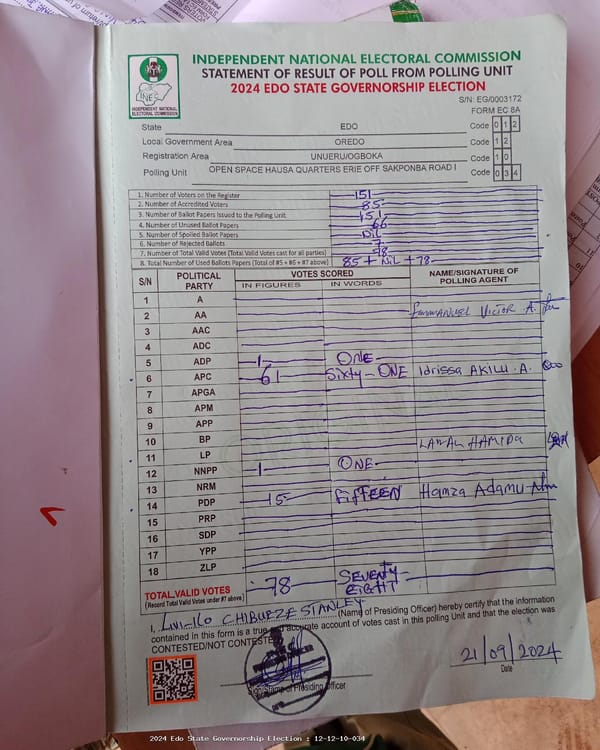 INDEPENDENT NATIONAL ELECTORAL COMMISSION
STATEMENT OF RESULT OF POLL FROM POLLING UNIT
2024 EDO STATE GOVERNORSHIP ELECTION
INEC
INDEPENDENT NATIONAL ELECTORAL COMMISSION
S/N: EG/0003172
FORM EC 8A
State EDO Code 0 1 2
Local Government Area OREDO Code 1 2
Registration Area UNUERU/OGBOKA Code 1 0
Polling Unit OPEN SPACE HAUSA QUARTERS ERIE OFF SAKPONBA ROAD I Code 0 3 4
1. Number of Voters on the Register 151
2. Number of Accredited Voters 85
3. Number of Ballot Papers Issued to the Polling Unit 151
4. Number of Unused Ballot Papers 66
5. Number of Spoiled Ballot Papers Nil
6. Number of Rejected Ballots 7
7. Number of Total Valid Votes (Total Valid Votes cast for all parties) 78
8. Total Number of Used Ballots Papers (Total of #5 + #6 + #7 above) 85 + Nil + 78
S/N POLITICAL PARTY VOTES SCORED NAME/SIGNATURE OF POLLING AGENT
IN FIGURES IN WORDS
1 A
2 AA Emmanuel Victor . A.
3 AAC
4 ADC
5 ADP 1 ONE
6 APC 61 Sixty-ONE Idrissa AKILU . A.
7 APGA
8 APM
9 APP
10 BP
11 LP LAWAL HAMIDA
12 NNPP 1 ONE
13 NRM
14 PDP 15 FifTEEN Hamza Adamu
15 PRP
16 SDP
17 YPP
18 ZLP
TOTAL VALID VOTES 78 SEVENTY-EIGHT
(Record Total Valid Votes under #7 above)
I, CHIBUEZE STANLEY (Name of Presiding Officer) hereby certify that the information
contained in this form is a true and accurate account of votes cast in this polling Unit and that the election was
CONTESTED/NOT CONTESTED
21/09/2024
Date
Presiding Officer
2024 Edo State Governorship Election : 12-12-10-034